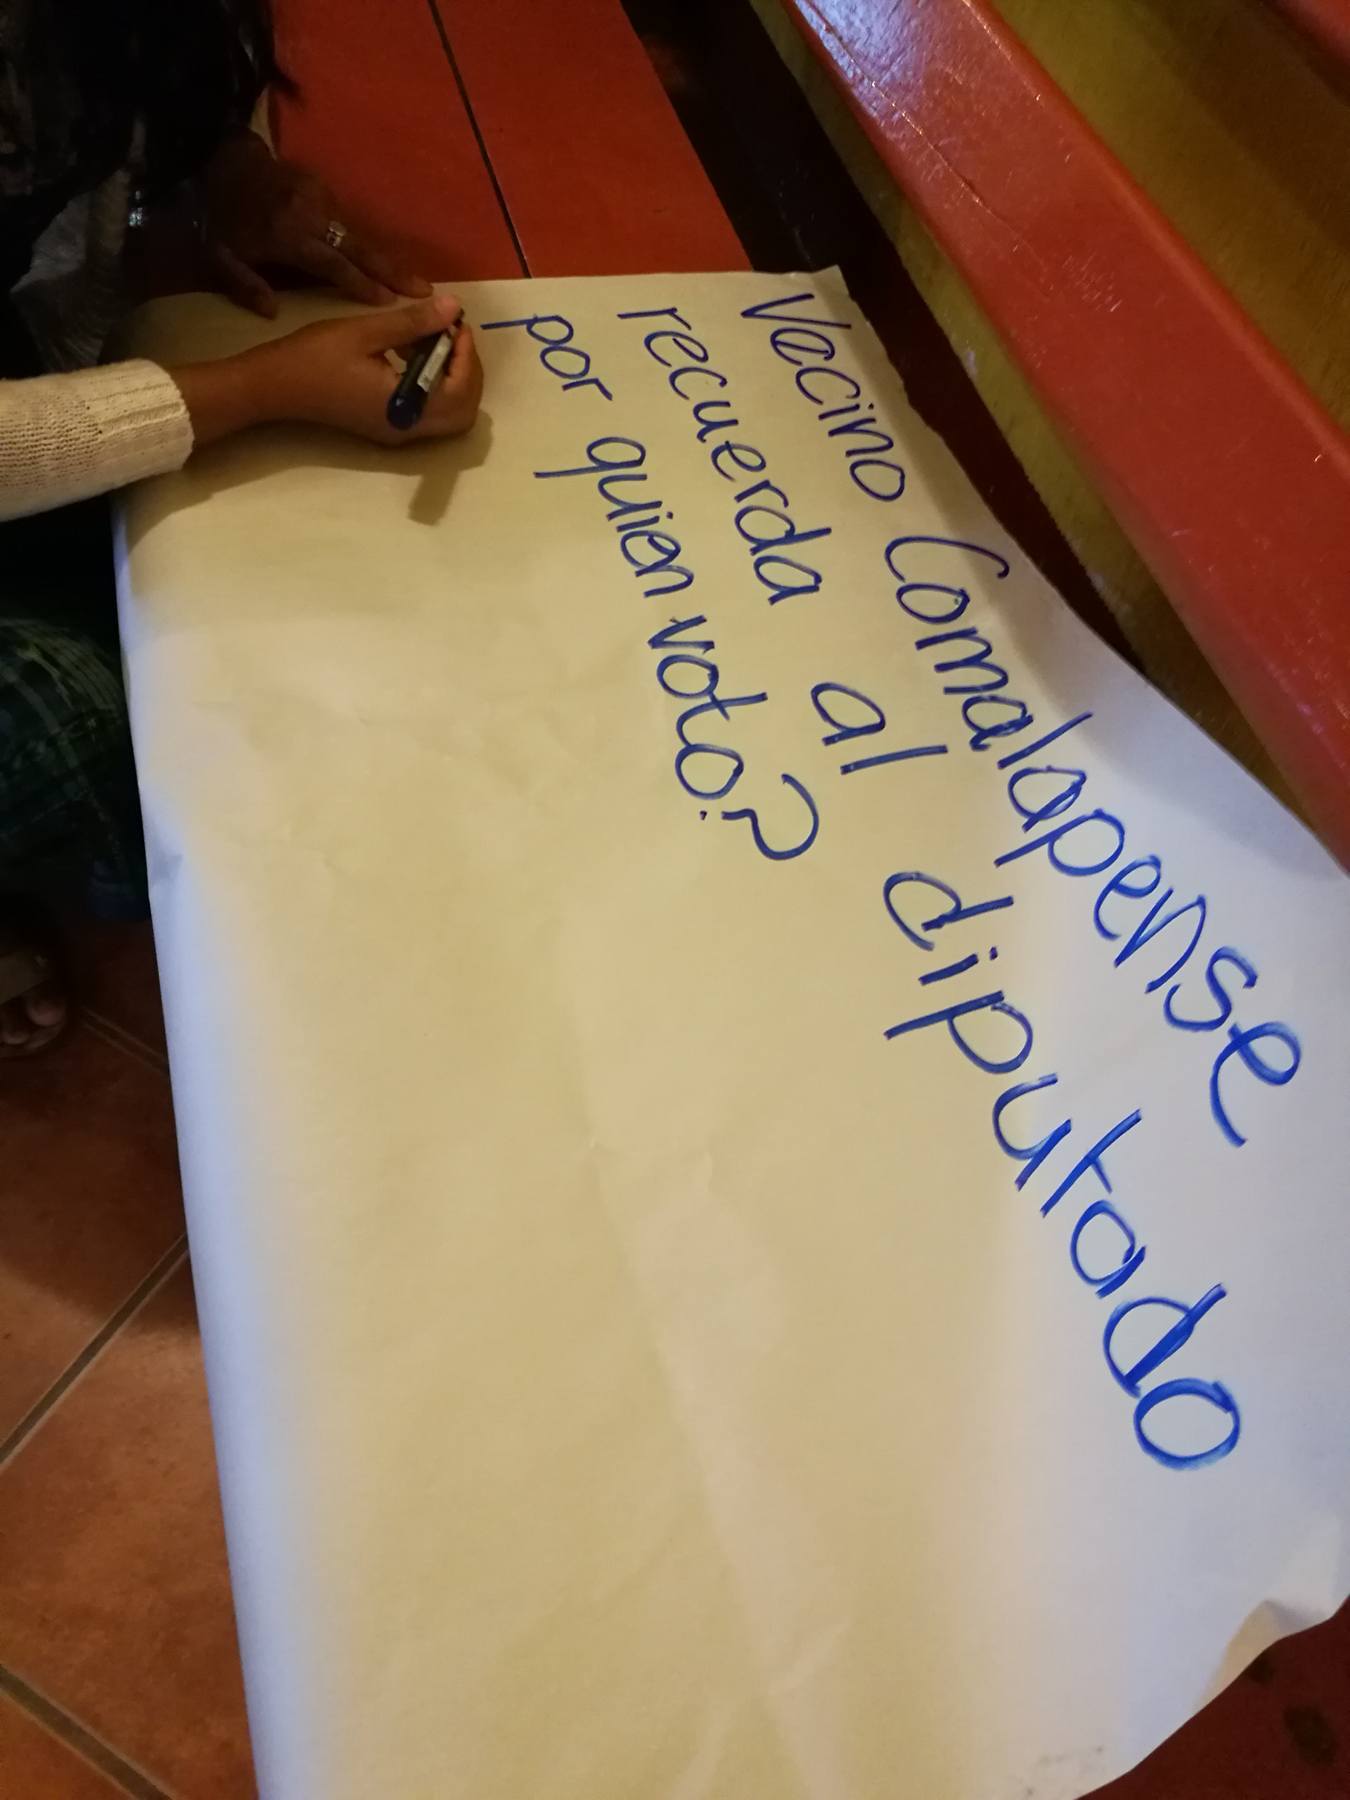 Vecino Comalapense
recuerda al diputado
por quien voto?